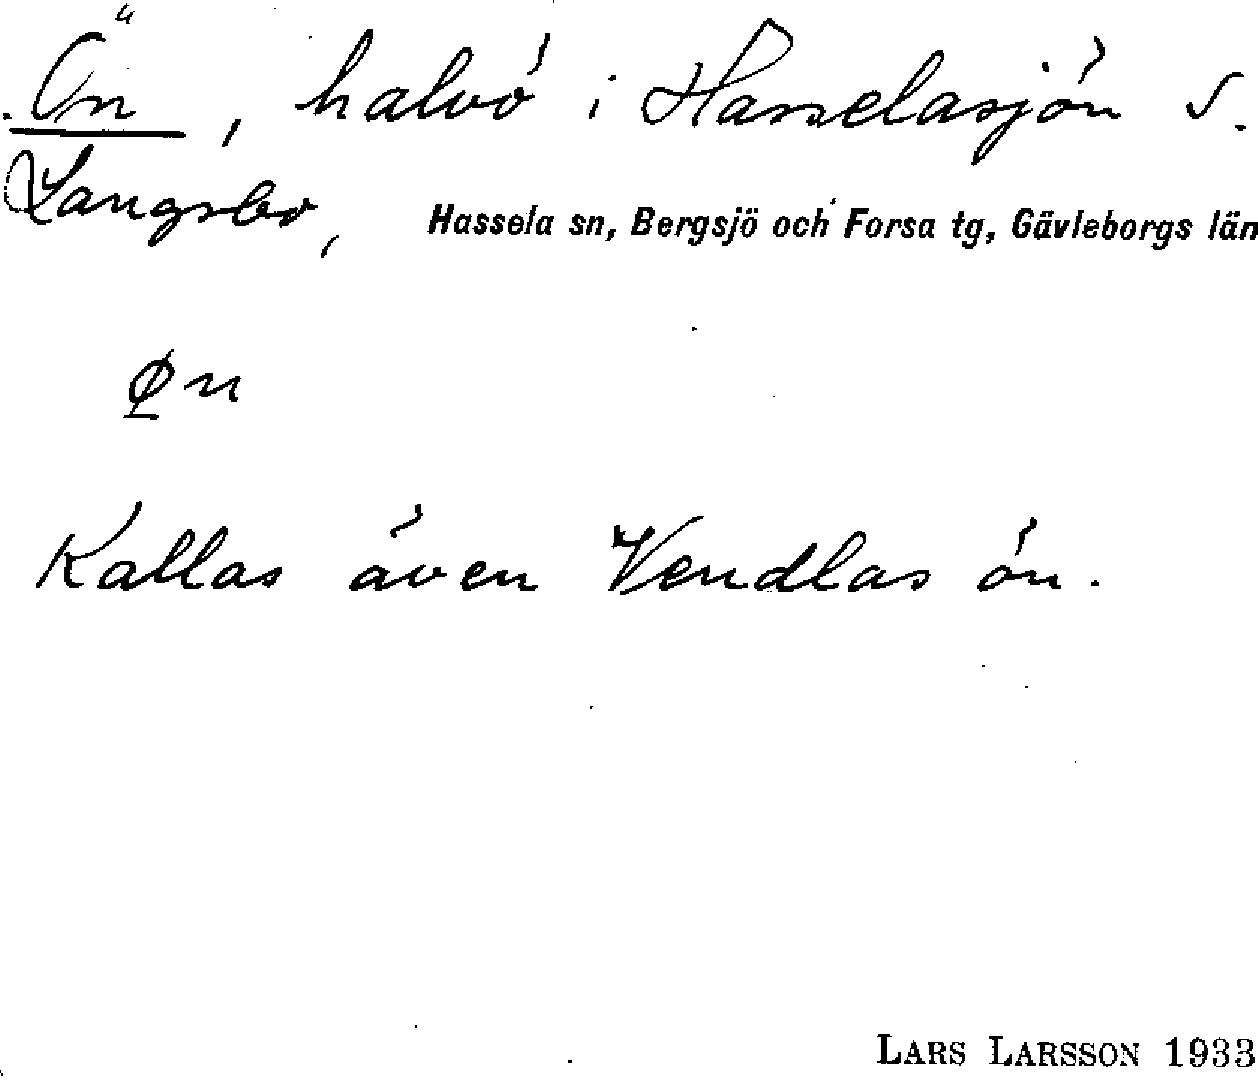 Ön, halvö i Hasselasjön V.
Långsbo, Hassela sn, Bergsjö och Forsa tg, Gävleborgs län
øn
Kallas även Vendlas ön.
LARS LARSSON 1933